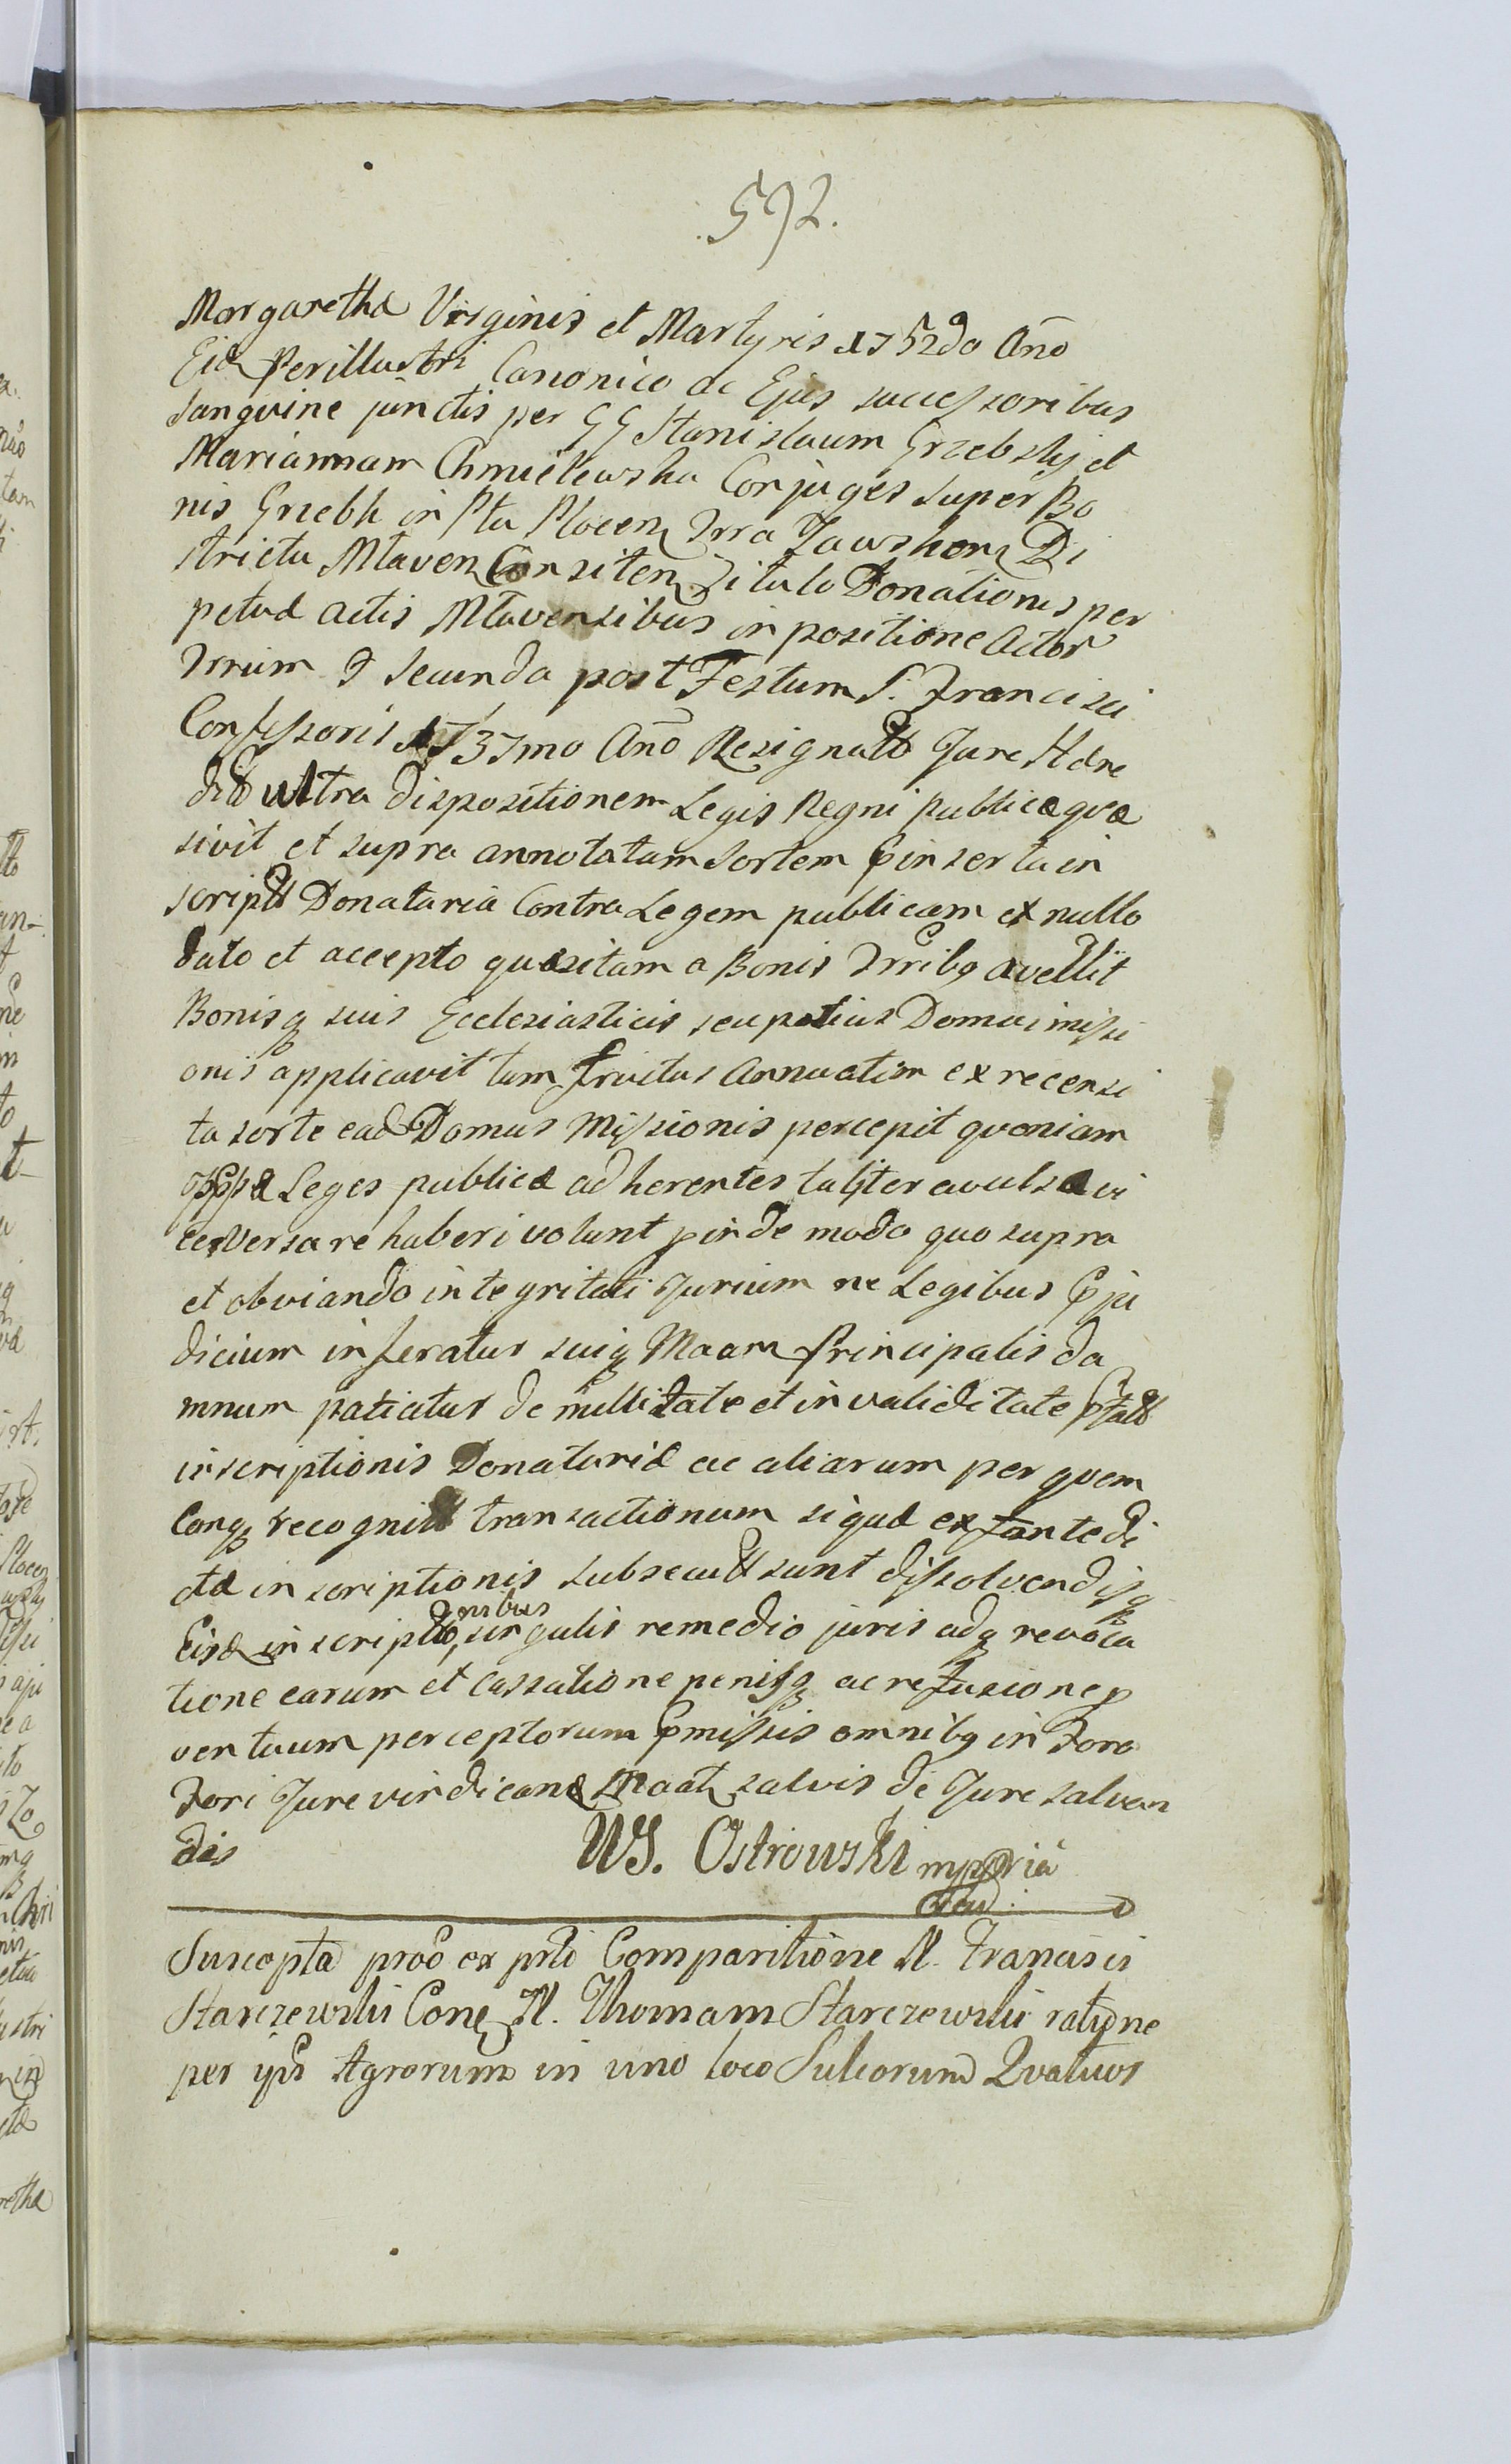 592.
Margarethæ Virginis et Martyris 1752do Año
Eid Perillustri Canonico ac Ejus successoribus
sanguine junctis per GG Stanislaum Grzebski et
Mariannam Chmielewska Conjuges super Bo
nis Grzebk in Pltu Plocen Trra Zawskren Di
strictu Mlaven Consiten Titulo Donationis per
petuæ actis Mlavensibus in positione Actor
Trrium F secunda post Festum S. Francisci
Confessoris 1737mo Año Resignato Jure Hære
ditto ultra dispositionem Legis Regni publicæ quæ
sivit et supra annotatam sortem p inserta in
script Donataria Contra Legem publicam ex nullo
dato et accepto quæsitam a Bonis Trribq avellit
Bonisq suis Ecclesiasticis seu potius Domui missi
onis applicavit tum fructus annuatim ex recensi
ta sorte ead Domus Missionis percepit quoniam
Leges publicæ adherentes taliter avulsa vi
ce Versa re haberi volunt pinde modo quo supra
et obviando integritati Jurium ne Legibus Ppju
dicium inferatur suiq Maam Principalis da
mnum patiatur de nullitate et invaliditate ptatt
inscriptionis Donatariæ ac aliarum per quem
Conq recognitt transactionum siquæ ex fante di
ctæ inscriptionis subsecutt sunt dissolvendisq
Eisd inscriptionibus singulis remedio juris adq revoca
tione earum et cassatione penisq ac refusione p
ventuum perceptorum Pmissis omnibq in Foro
Fori Jure vindicand Maat salvis de Jure salvan
dis
WJ. Ostrowski mppria
Suscepta proc ex prto Comparitione N. Francisci
Starczewski Cone N. Thomam Starczewski ratione
per ips Agrorum in uno loco Sulcorum Quatuor